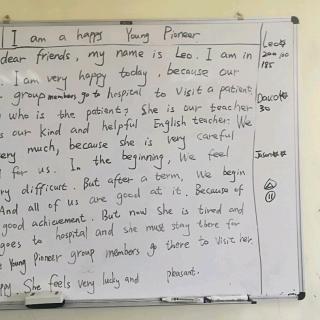 I am a happy Young Pioneer
dear friends, my name is Leo. I am in
. I am very happy today, because our
group members go to hospital to visit a patient.
who is the patient? She is our teacher
is our kind and helpful English teacher. We
very much, because she is very careful
for us. In the beginning, We feel
difficult. But after a term, We begin
And all of us are good at it. Because of
good achievement. But now she is tired and
goes to hospital and she must stay there for
Young Pioneer group members go there to visit her.
She feels very lucky and pleasant.
Leo
185
David
30
Jason